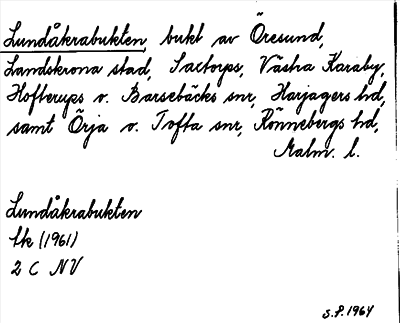 Lundåkrabukten, bukt av Öresund,
Landskrona stad, Saxtorps, Västra Karaby,
Hofterups o. Barsebäcks snr, Harjagers hd,
samt Örja o. Tofta snr, Rönnebergs hd,
Malm. l.
Lundåkrabukten
Ek (1961)
2 C NV
S.P. 1964